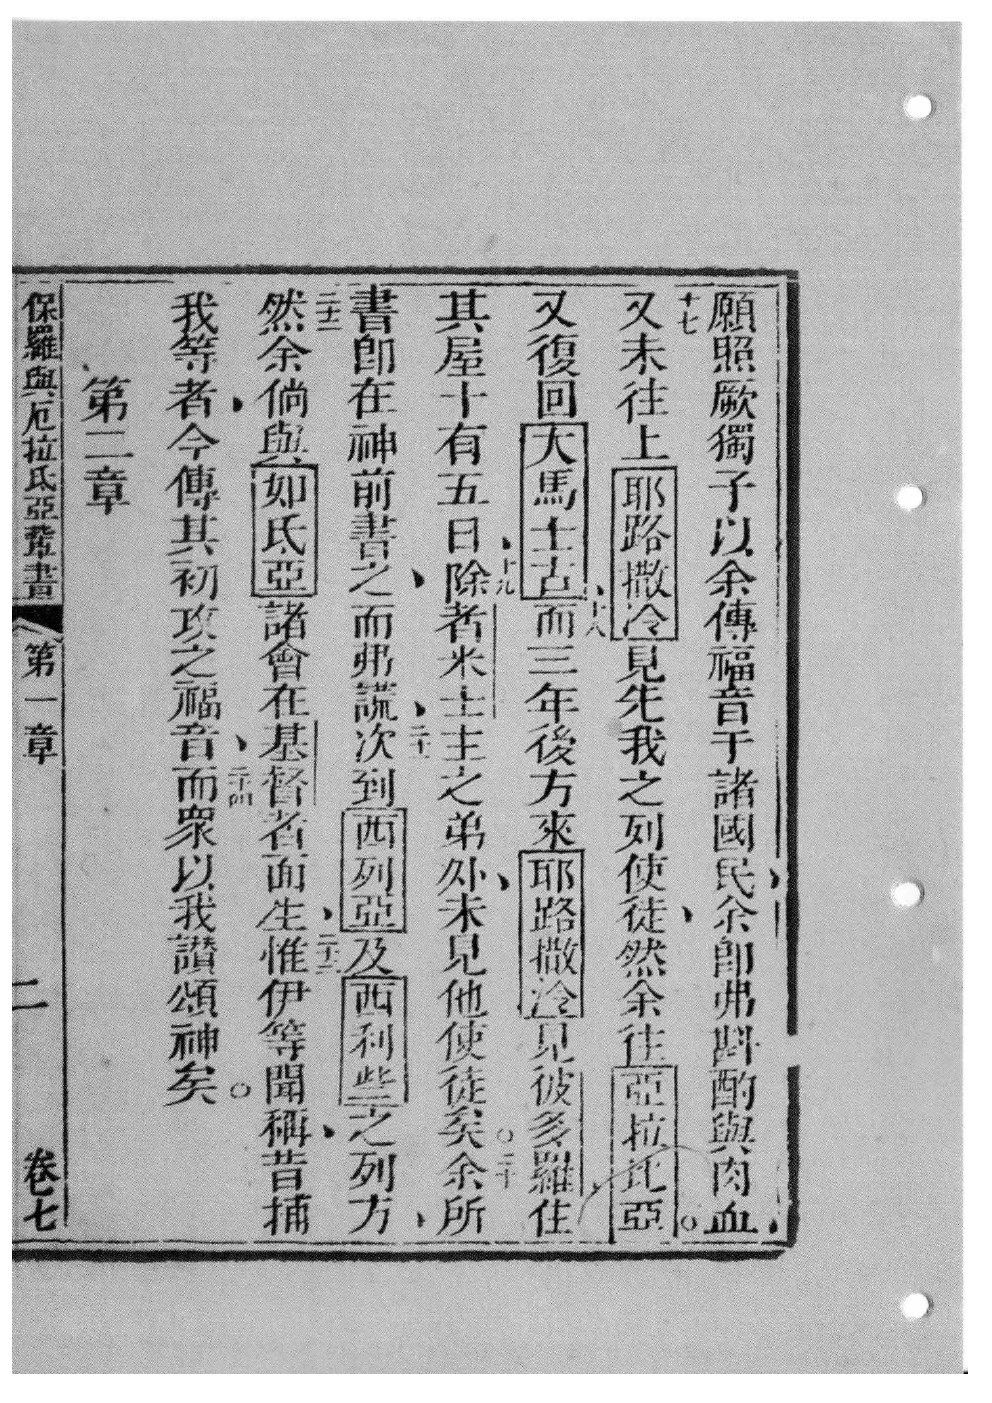 願照厥獨子以余傳福音于諸國民余卽弗斟酌與肉血
十七
又未往上耶路撒冷見先我之列使徒然余往亞拉比亞
又復回大馬士古而三年後方來耶路撒冷見彼多羅住
十八
其屋十有五日除者米士主之弟外未見他使徒矣余所
十九
二十
書卽在神前書之而弗謊次到西列亞及西利些之列方
二十一
然余倘與如氐亞諸會在基督者面生惟伊等聞稱昔捕
二十二
二十三
我等者今傳其初攻之福音而眾以我讚頌神矣
二十四
第二章
保羅與厄拉氐亞輩書
第一章
二
卷七